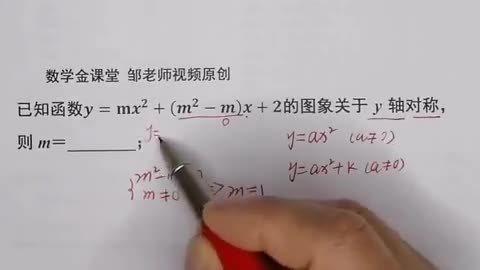 数学金课堂 邹老师视频原创
已知函数y = mx² + (m² − m)x + 2的图象关于 y 轴对称,
0
则 m=________; y=
y=ax² (a≠0)
y=ax²+k (a≠0)
m≠0 => m=1